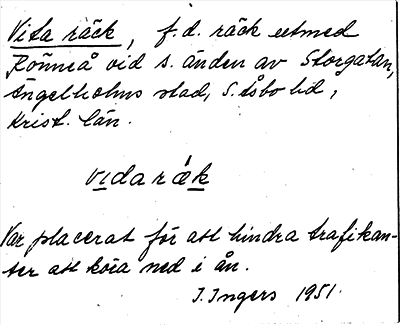 Vita räck, f.d. räck utmed
Rönneå vid s. änden av Storgatan,
Ängelholms stad, S. Åsbo hd,
Krist. län.
vidaræk
Var placerat för att hindra trafikan-
ter att köra ned i ån.
I. Ingers 1951.